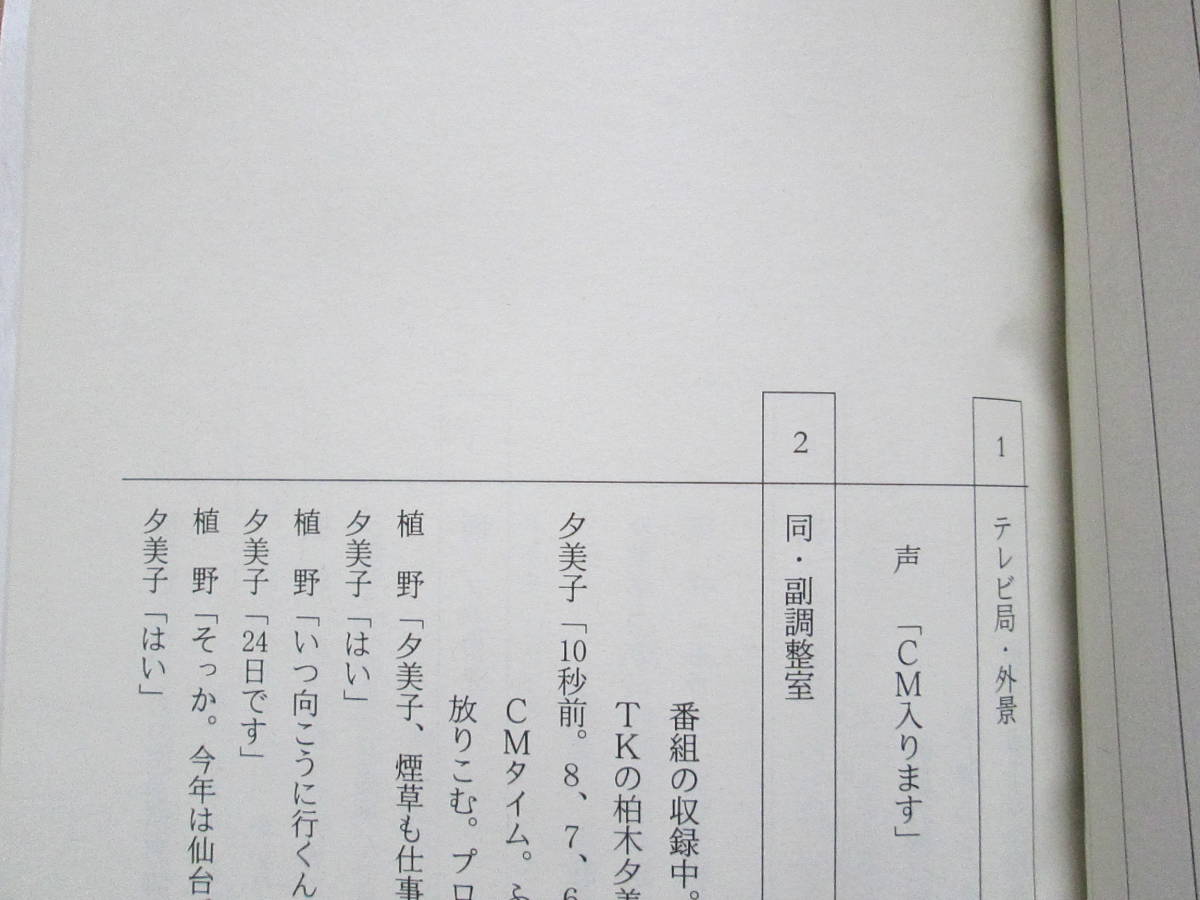 1 テレビ局・外景
声 「CM入ります」
2 同・副調整室
番組の収録中。
TKの柏木夕美
夕美子「10秒前。8、7、6
CMタイム。ふ
放りこむ。プロ
植 野「夕美子、煙草も仕事
夕美子「はい」
植 野「いつ向こうに行くん
夕美子「24日です」
植 野「そっか。今年は仙台
夕美子「はい」